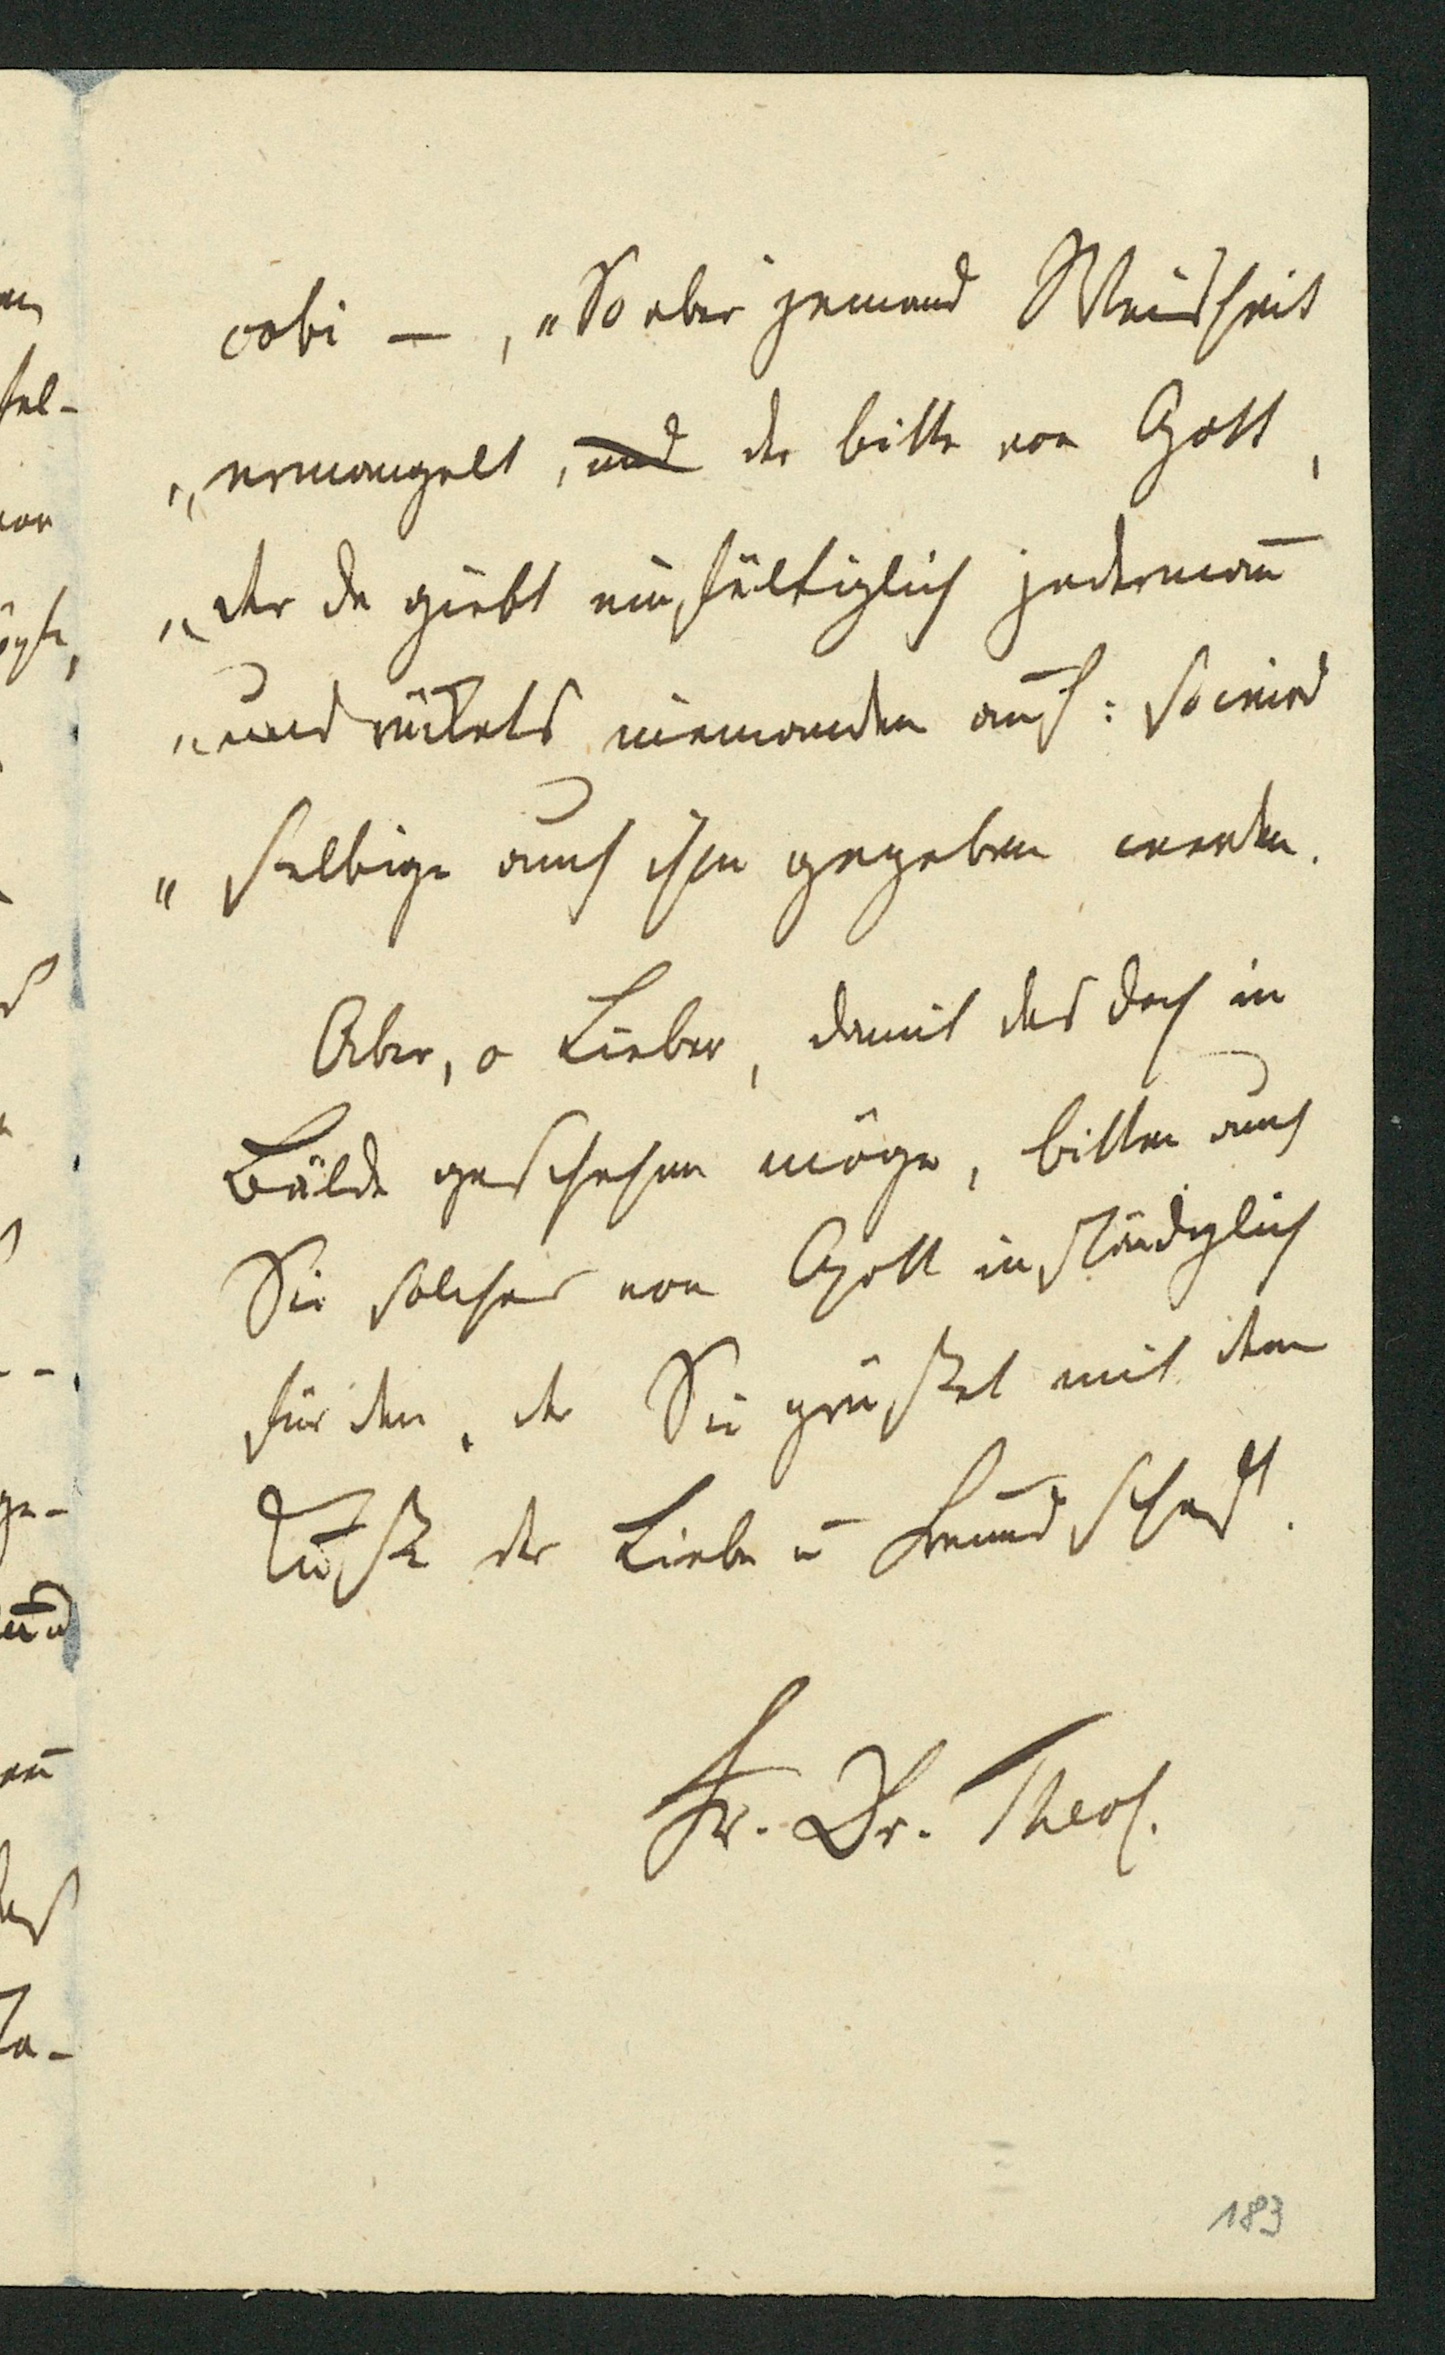 cobi –, „So aber jemand Weisheit
„ermangelt, und der bitte von Gott,
„der da giebt einfältiglich jederman̄
„und rückets niemanden auf: so wird
„selbige auch ihm gegeben werden.
Aber, o Lieber, damit das doch in
Bälde geschehen möge, bitten auch
Sie solches von Gott inständiglich
für den, der Sie grüßet mit dem
Kuße der Liebe u Freundschaft.
Fr. Dr. Theol.
183